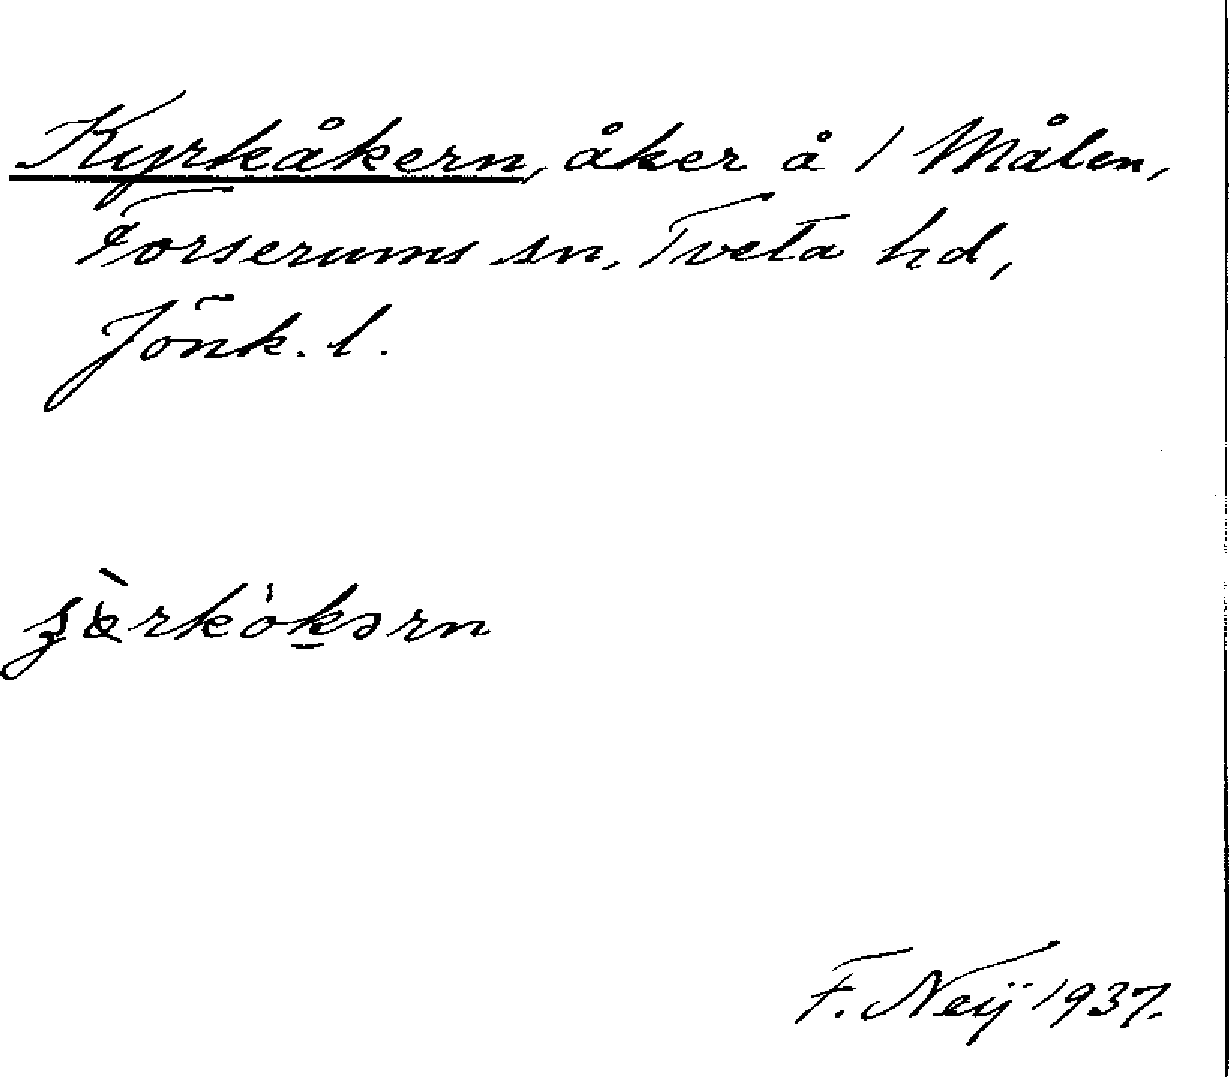 Kyrkåkern, åker å 1 Målen,
Forserums sn, Tveta hd,
Jönk. l.
F. Neij 1937.